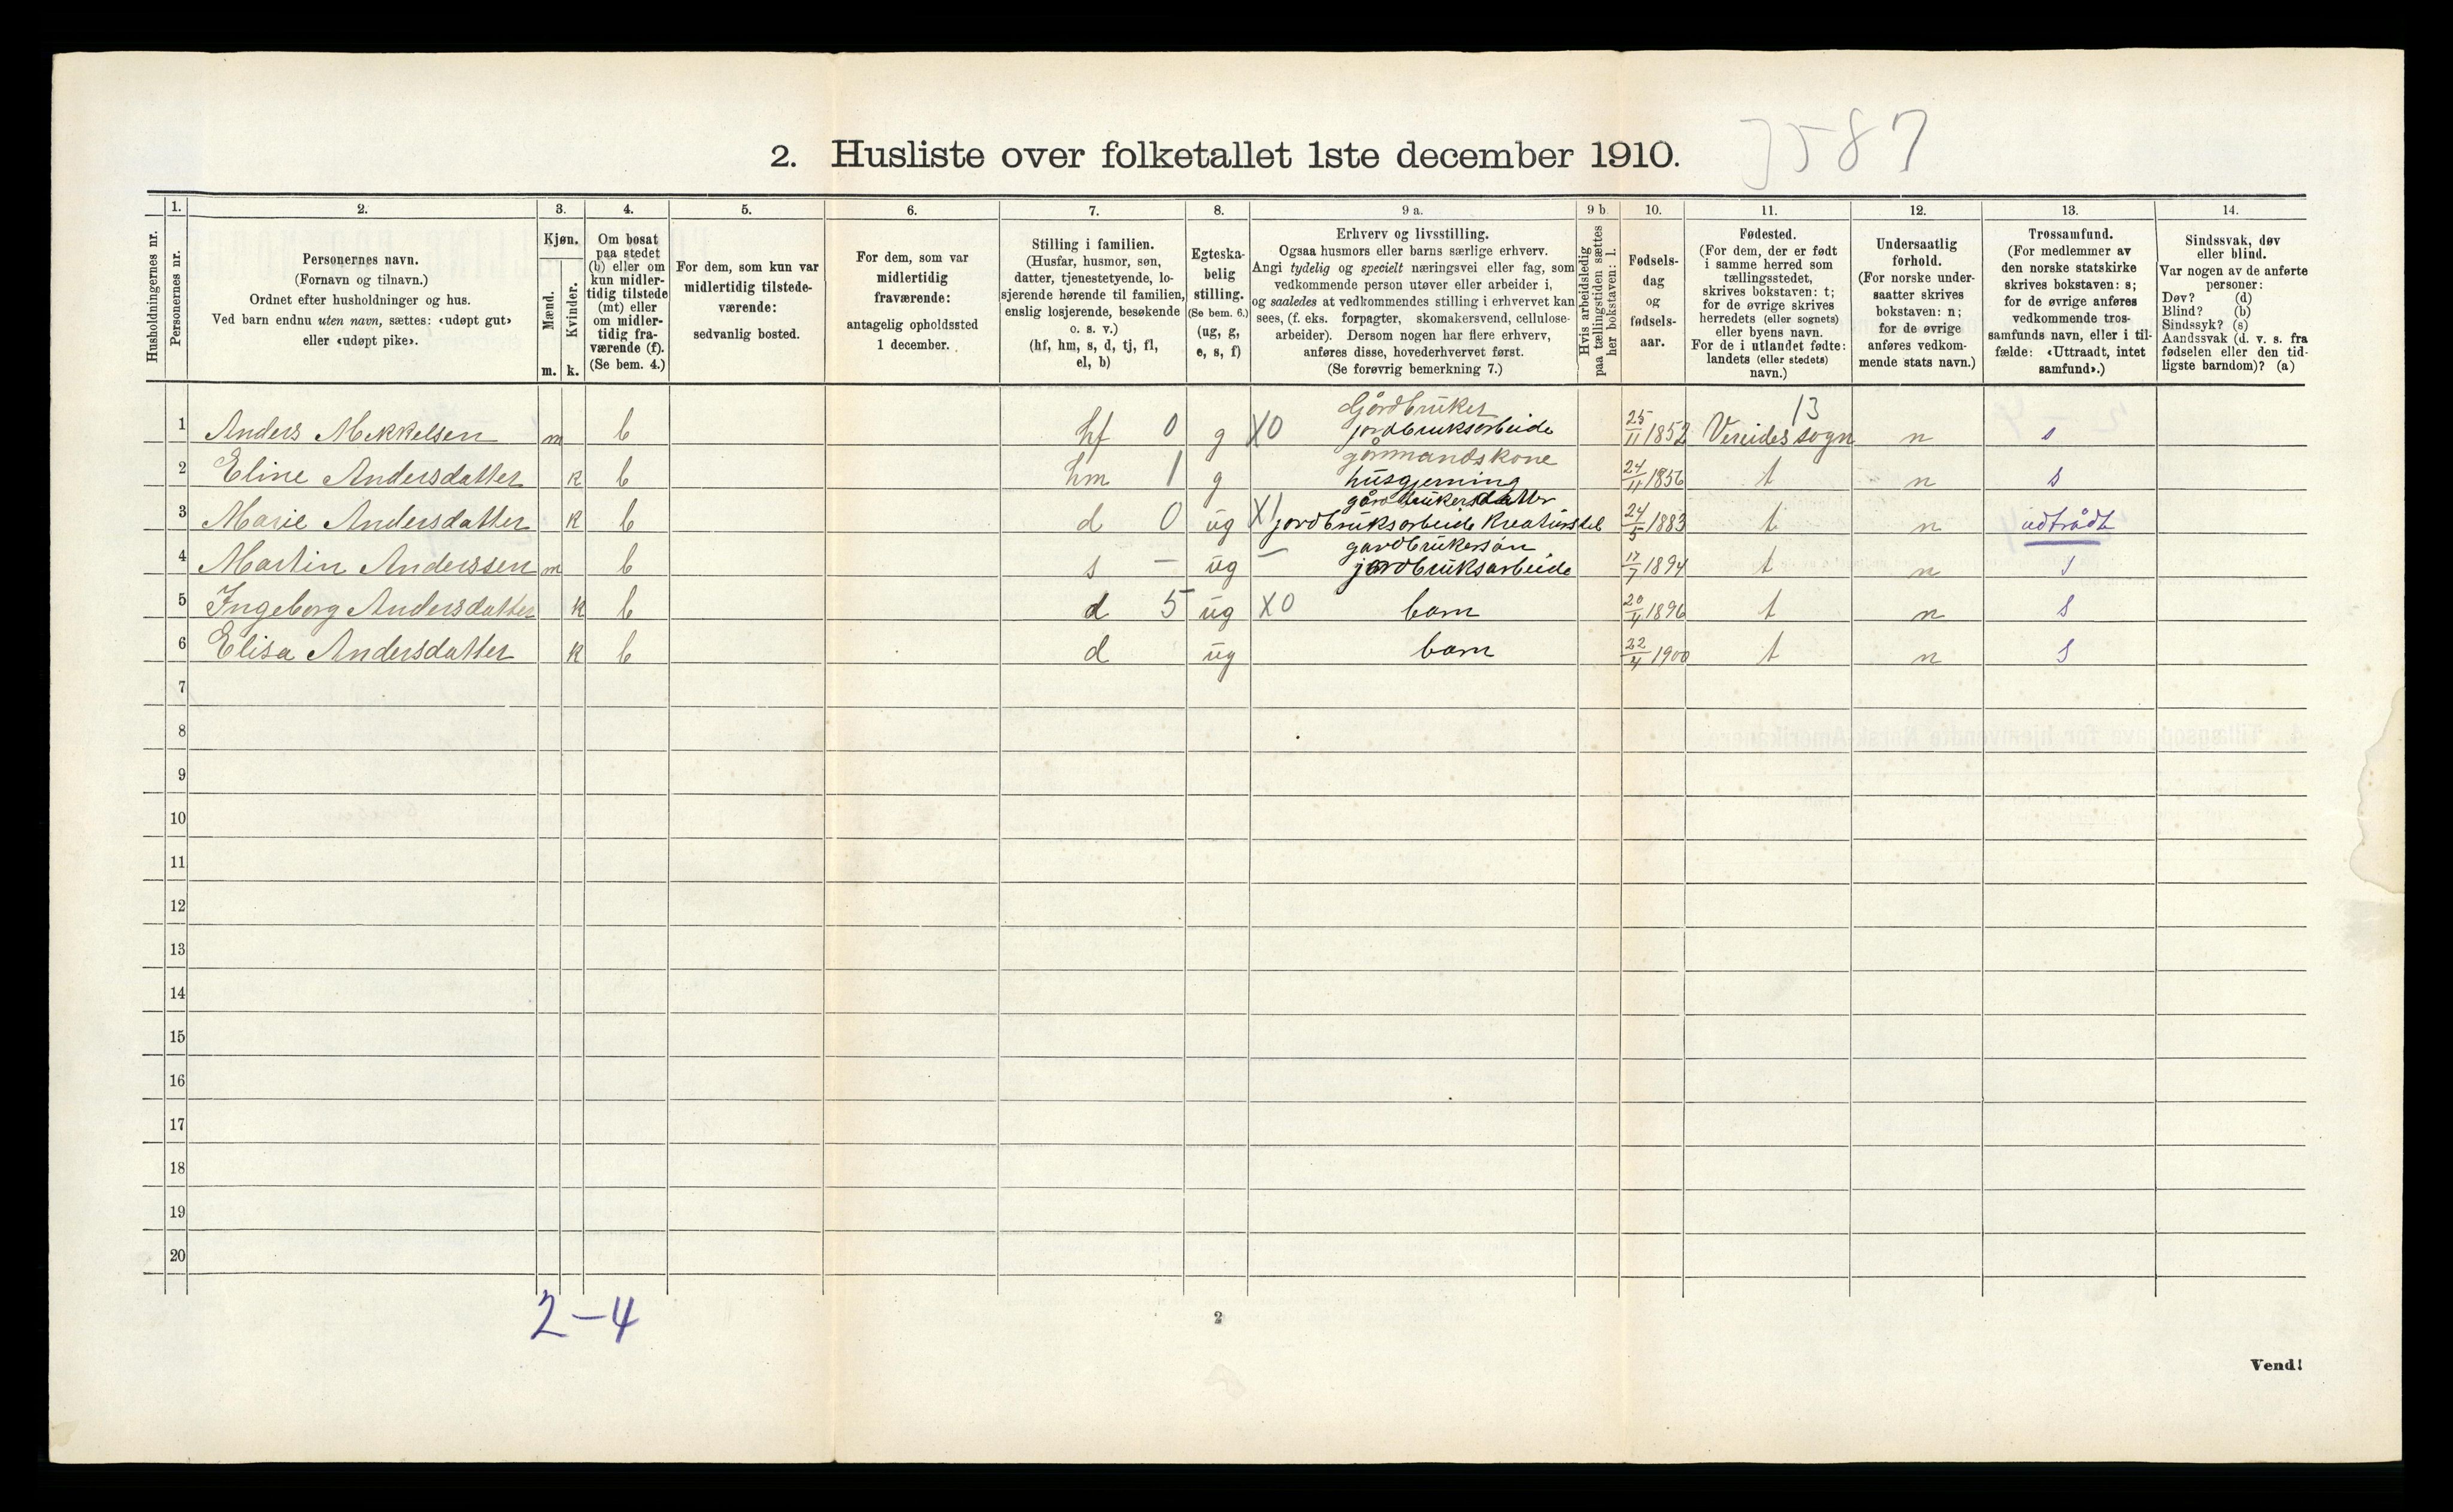 2. Husliste over folketallet 1ste december 1910.
3587
Husholdningernes nr.
1.
Personernes nr.
2.
Personernes navn.
(Fornavn og tilnavn.)
Ordnet efter husholdninger og hus.
Ved barn endnu uten navn, sættes: «udøpt gut»
eller «udøpt pike».
3.
Kjøn.
Mænd.
Kvinder.
m. k.
4.
Om bosat
paa stedet
(b) eller om
kun midler-
tidig tilstede
(mt) eller
om midler-
tidig fra-
værende (f).
(Se bem. 4.)
5.
For dem, som kun var
midlertidig tilstede-
værende:
sedvanlig bosted.
6.
For dem, som var
midlertidig
fraværende:
antagelig opholdssted
1 december.
7.
Stilling i familien.
(Husfar, husmor, søn,
datter, tjenestetyende, lo-
sjerende hørende til familien,
enslig losjerende, besøkende
o. s. v.)
(hf, hm, s, d, tj, fl,
el, b)
8.
Egteska-
belig
stilling.
(Se bem. 6.)
(ug, g,
e, s, f)
9 a.
Erhverv og livsstilling.
Ogsaa husmors eller barns særlige erhverv.
Angi tydelig og specielt næringsvei eller fag, som
vedkommende person utøver eller arbeider i,
og saaledes at vedkommendes stilling i erhvervet kan
sees, (f. eks. forpagter, skomakersvend, cellulose-
arbeider). Dersom nogen har flere erhverv,
anføres disse, hovederhvervet først.
(Se forøvrig bemerkning 7.)
9 b.
Hvis arbeidsledig
paa tællingstiden sættes
her bokstaven: l.
10.
Fødsels-
dag
og
fødsels-
aar.
11.
Fødested.
(For dem, der er født
i samme herred som
tællingsstedet,
skrives bokstaven: t;
for de øvrige skrives
herredets (eller sognets)
eller byens navn.
For de i utlandet fødte:
landets (eller stedets)
navn.)
12.
Undersaatlig
forhold.
(For norske under-
saatter skrives
bokstaven: n;
for de øvrige
anføres vedkom-
mende stats navn.)
13.
Trossamfund.
(For medlemmer av
den norske statskirke
skrives bokstaven: s;
for de øvrige anføres
vedkommende tros-
samfunds navn, eller i til-
fælde: «Uttraadt, intet
samfund».)
14.
Sindssvak, døv
eller blind.
Var nogen av de anførte
personer:
Døv? (d)
Blind? (b)
Sindssyk? (s)
Aandssvak (d. v. s. fra
fødselen eller den tid-
ligste barndom)? (a)
Gårdbruker 13
1 Anders Mekkelsen m b hf 0 g X0 jordbruksarbeide 25/11 1852 Vereides sogn n s
gårmandskone
2 Eline Andersdatter k b hm 1 g husgjerning 24/11 1856 t n s
gårdbrukersdatter
3 Marie Andersdatter k b d 0 ug X1 jordbruksarbeide Kreaturstel 24/5 1883 t n udtrådt
gardbrukersøn
4 Martin Anderssen m b s – ug – jordbruksarbeide 17/7 1894 t n s
5 Ingeborg Andersdatter k b d 5 ug X0 barn 20/4 1896 t n s
6 Elisa Andersdatter k b d ug barn 22/4 1900 t n s
7
8
9
10
11
12
13
14
15
16
17
18
19
20
2-4
2
Vend!